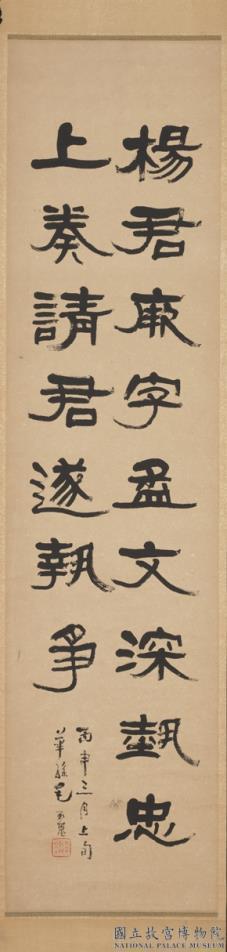 楊君厥字孟文深執忠
上奏請君遂執爭
丙申三月上旬
毛
國立故宮博物院
NATIONAL PALACE MUSEUM